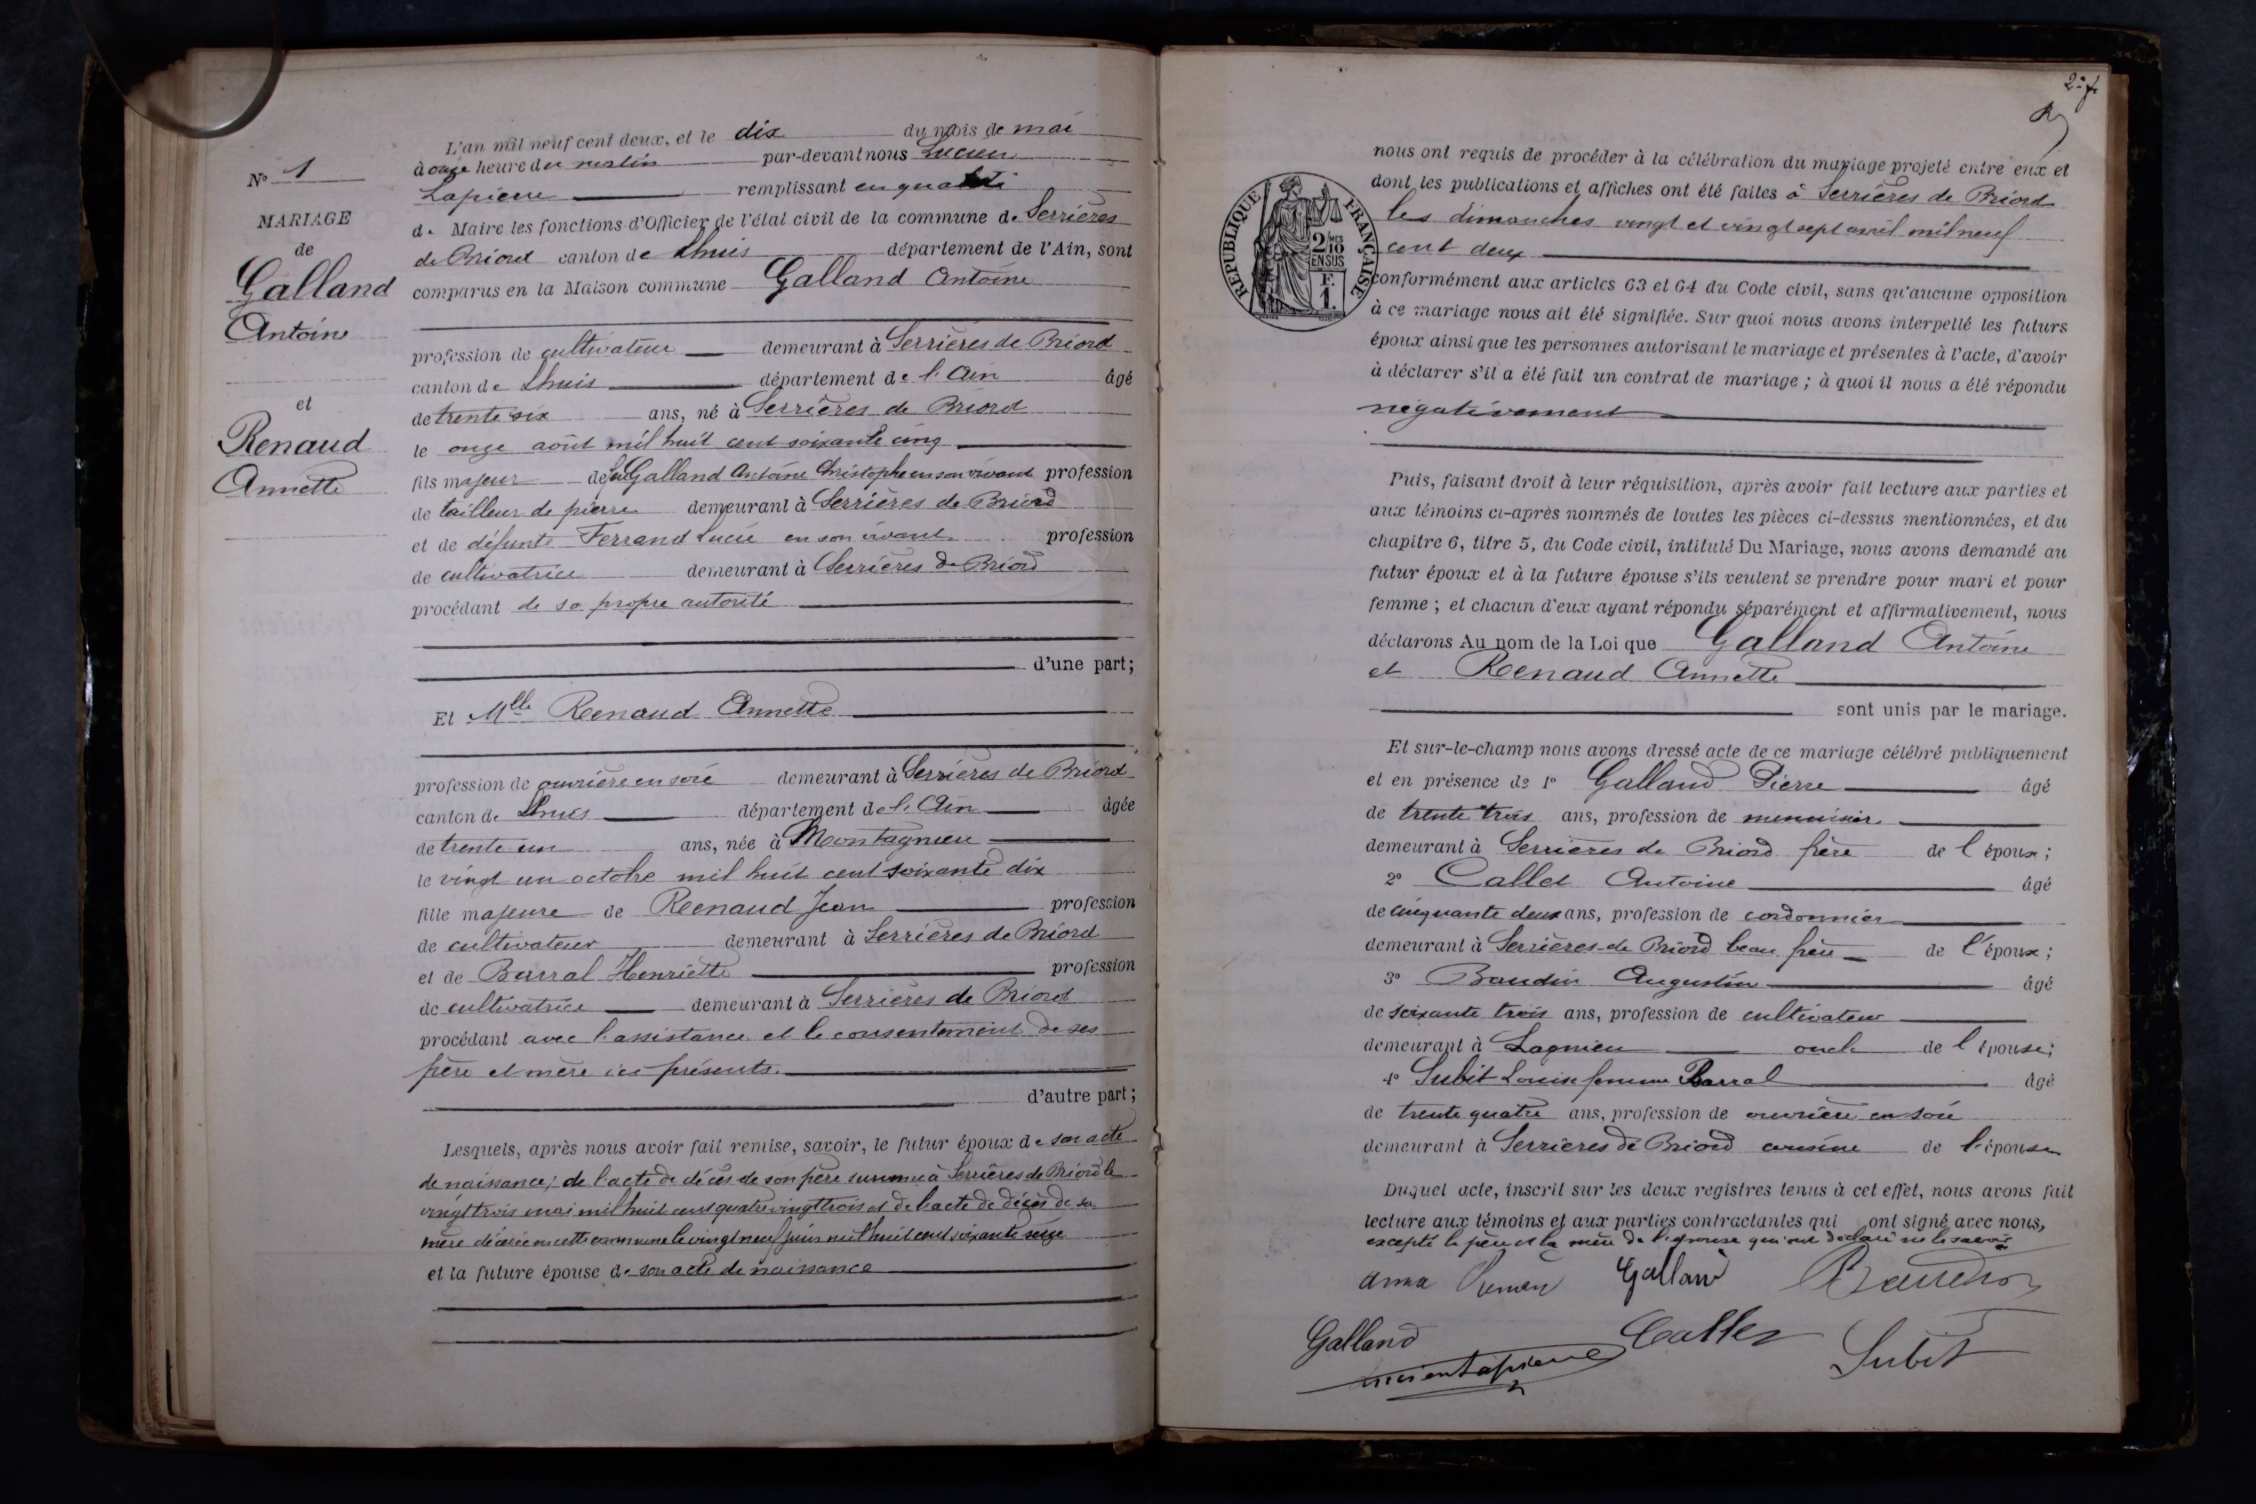 N° 1
MARIAGE
de
Galland
Antoine
et
Renaud
Annette
L'an mil neuf cent deux, et le dix du mois de mai
à onze heure du matin par-devant nous Lucien
Lapierre remplissant en qualité
de Maire les fonctions d'Officier de l'état civil de la commune de Serrières
de Briord canton de Lhuis département de l'Ain, sont
comparus en la Maison commune Galland Antoine
profession de cultivateur demeurant à Serrières de Briord
canton de Lhuis département de l'Ain âgé
de trente six ans, né à Serrières de Briord
le onze août mil huit cent soixante cinq
fils majeur de feu Galland Antoine Christophe en son vivant profession
de tailleur de pierre demeurant à Serrières de Briord
et de défunte Ferrand Lucie en son vivant profession
de cultivatrice demeurant à Serrières de Briord
procédant de sa propre autorité
d'une part;
Et Mlle Renaud Annette
profession de ouvrière en soie demeurant à Serrières de Briord
canton de Lhuis département de l'Ain âgée
de trente un ans, née à Montagnieu
le vingt un octobre mil huit cent soixante dix
fille majeure de Renaud Jean profession
de cultivateur demeurant à Serrières de Briord
et de Barral Henriette profession
de cultivatrice demeurant à Serrières de Briord
procédant avec l'assistance et le consentement de ses
père et mère ici présents.
d'autre part;
Lesquels, après nous avoir fait remise, savoir, le futur époux de son acte
de naissance; de l'acte de décès de son père survenu à Serrières de Briord le
vingt trois mai mil huit cent quatre vingt trois et de l'acte de décès de sa
mère décédée en cette commune le vingt neuf juin mil huit cent soixante seize
et la future épouse de son acte de naissance
2e f.
nous ont requis de procéder à la célébration du mariage projeté entre eux et
dont les publications et affiches ont été faites à Serrières de Briord
les dimanches vingt et vingt sept avril mil neuf
cent deux
RÉPUBLIQUE FRANÇAISE
2/10 EN SUS
F. 1.
conformément aux articles 63 et 64 du Code civil, sans qu'aucune opposition
à ce mariage nous ait été signifiée. Sur quoi nous avons interpellé les futurs
époux ainsi que les personnes autorisant le mariage et présentes à l'acte, d'avoir
à déclarer s'il a été fait un contrat de mariage; à quoi il nous a été répondu
négativement
Puis, faisant droit à leur réquisition, après avoir fait lecture aux parties et
aux témoins ci-après nommés de toutes les pièces ci-dessus mentionnées, et du
chapitre 6, titre 5, du Code civil, intitulé Du Mariage, nous avons demandé au
futur époux et à la future épouse s'ils veulent se prendre pour mari et pour
femme; et chacun d'eux ayant répondu séparément et affirmativement, nous
déclarons Au nom de la Loi que Galland Antoine
et Renaud Annette
sont unis par le mariage.
Et sur-le-champ nous avons dressé acte de ce mariage célébré publiquement
et en présence de 1° Galland Pierre âgé
de trente trois ans, profession de menuisier
demeurant à Serrières de Briord frère de l'époux;
2° Callet Antoine âgé
de cinquante deux ans, profession de cordonnier
demeurant à Serrières de Briord beau frère de l'époux;
3° Baudin Augustin âgé
de soixante trois ans, profession de cultivateur
demeurant à Lagnieu oncle de l'épouse;
4° Subit Louise femme Barral âgé
de trente quatre ans, profession de ouvrière en soie
demeurant à Serrières de Briord cousine de l'épouse
Duquel acte, inscrit sur les deux registres tenus à cet effet, nous avons fait
lecture aux témoins et aux parties contractantes qui ont signé avec nous,
excepté le père et la mère de l'épouse qui ont déclaré ne le savoir
Galland
Galland Callet Subit